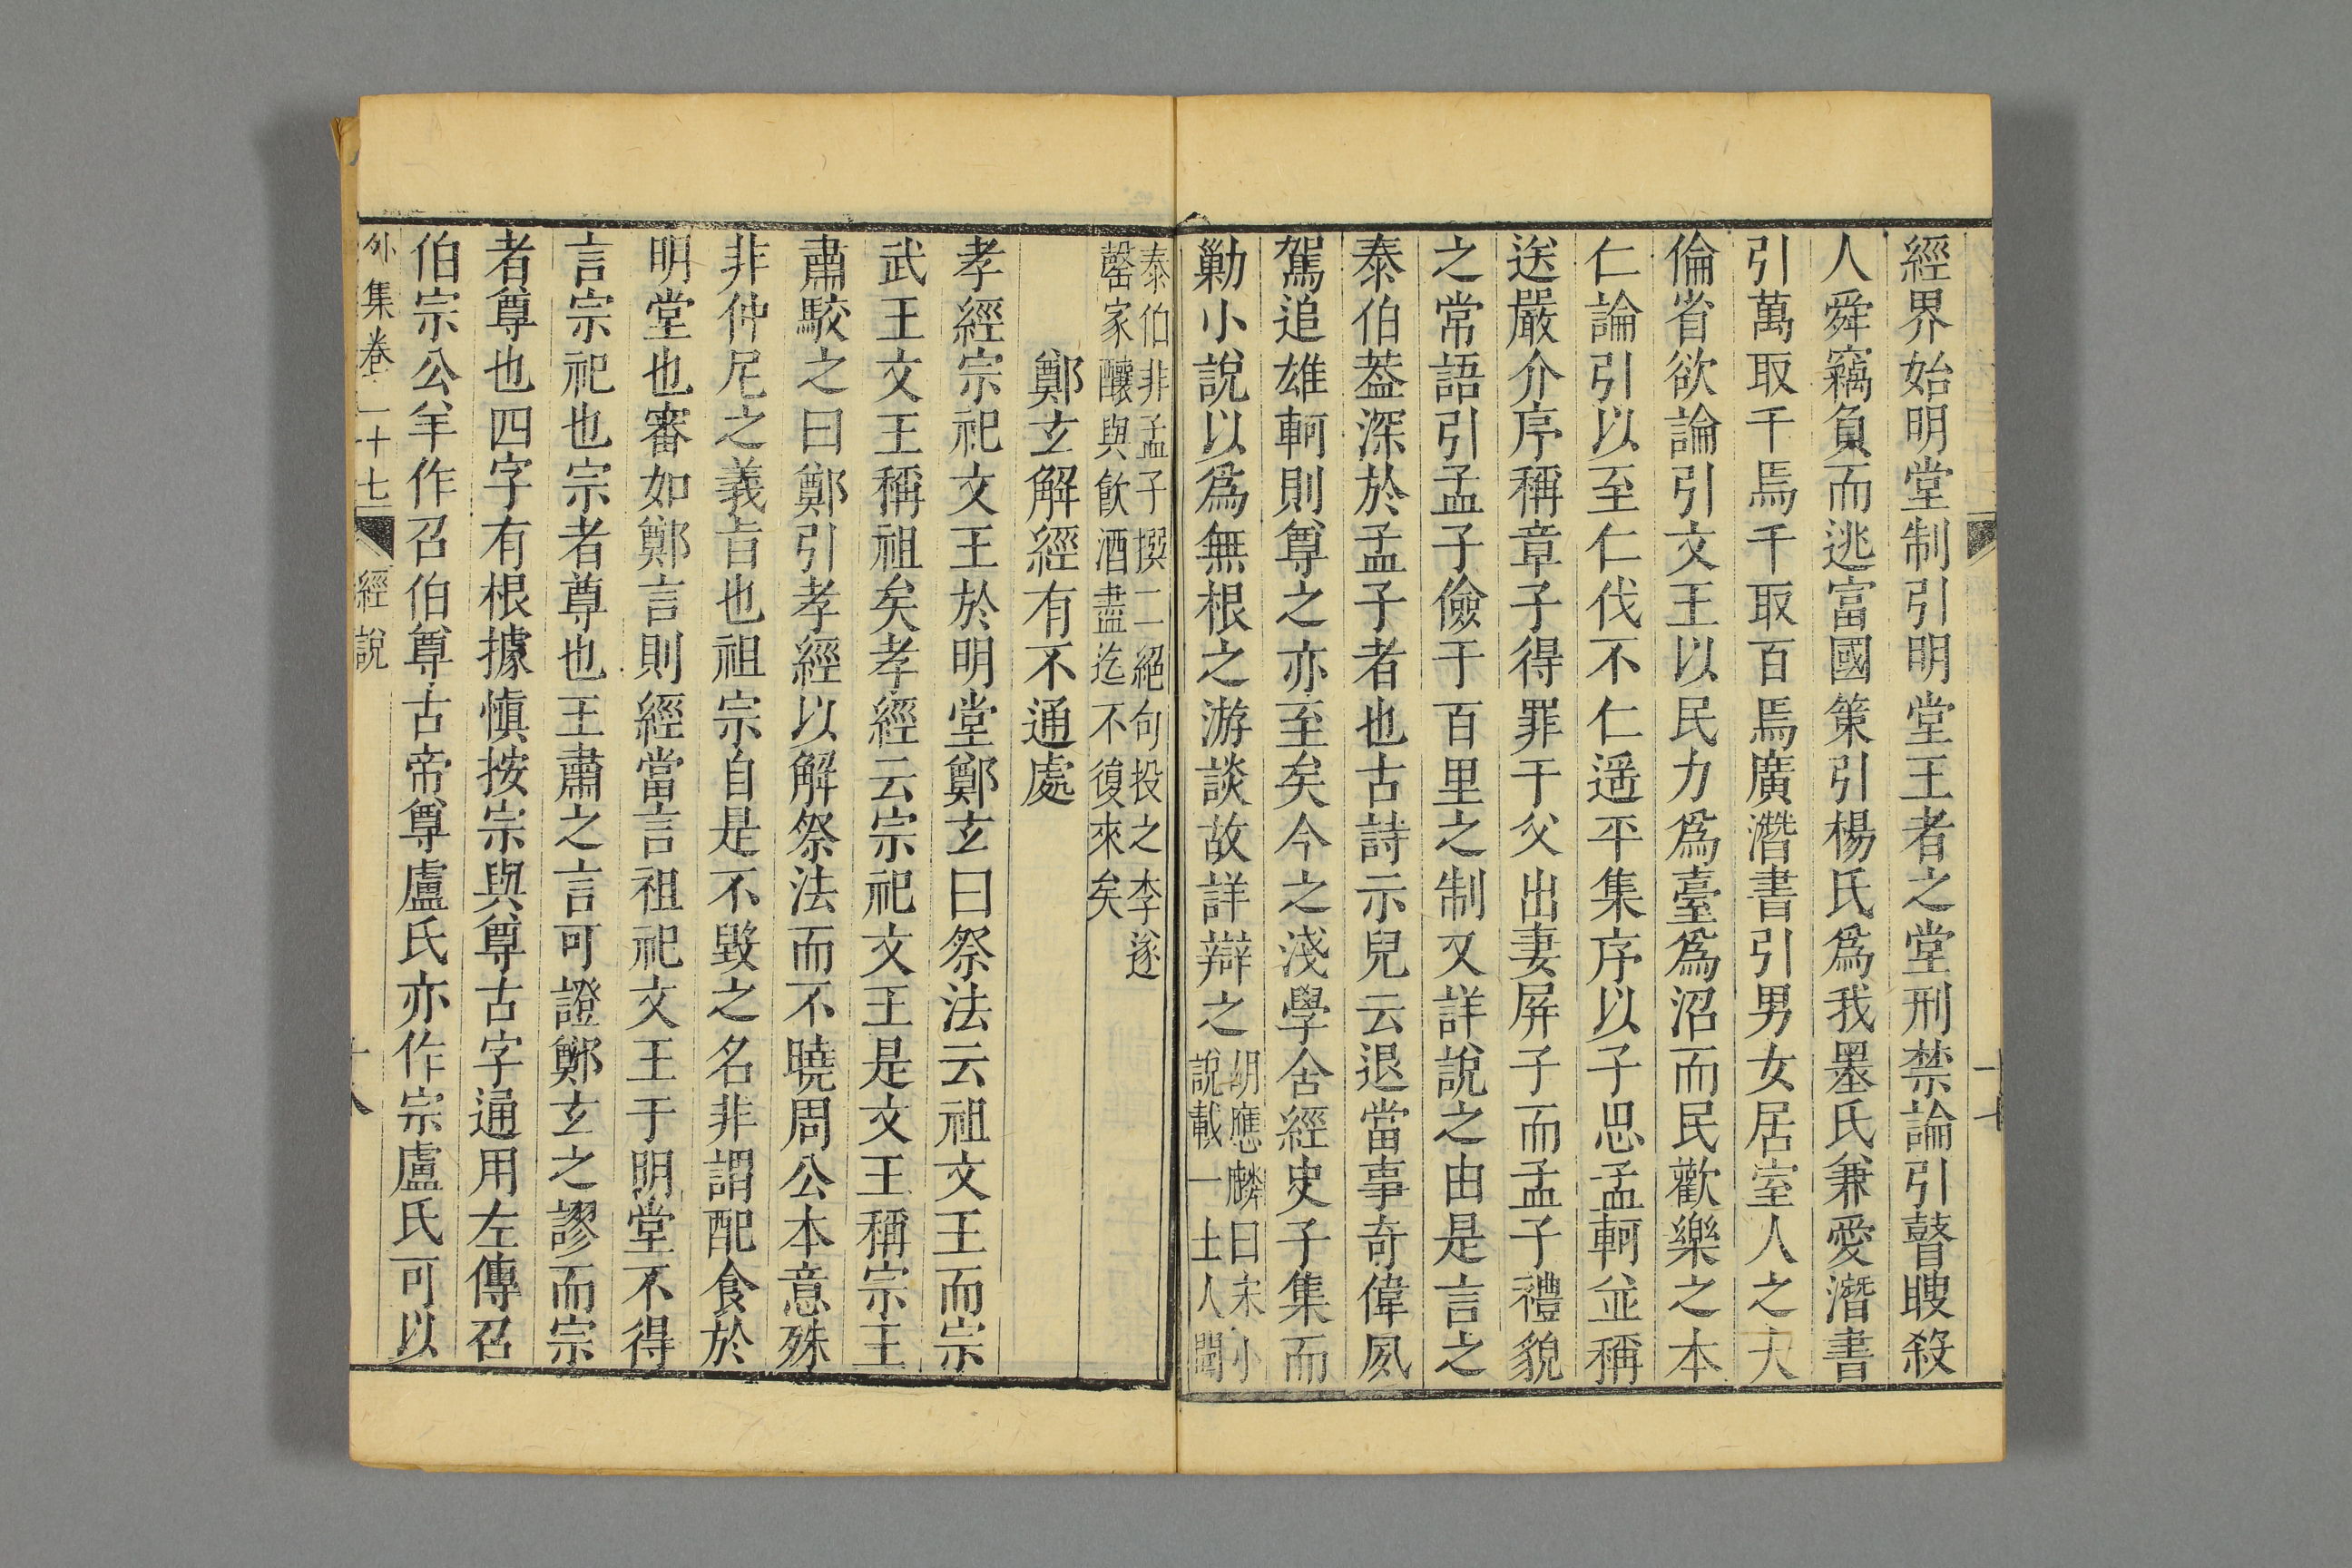 經界始明堂制引明堂王者之堂刑禁論引瞽瞍殺
人舜竊負而逃富國策引楊氏爲我墨氏兼愛潛書
引萬取千焉千取百焉廣潛書引男女居室人之大
倫省欲論引文王以民力爲臺爲沼而民歡樂之本
仁論引以至仁伐不仁遥平集序以子思孟軻並稱
送嚴介序稱章子得罪于父出妻屏子而孟子禮貌
之常語引孟子儉于百里之制又詳說之由是言之
泰伯葢深於孟子者也古詩示兒云退當事奇偉夙
駕追雄軻則尊之亦至矣今之淺學舍經史子集而
勦小說以爲無根之游談故詳辯之
胡應麟曰宋小
說載一士人聞
泰伯非孟子撰二絕句投之李遂
罄家釀與飮酒盡迄不復來矣
鄭玄解經有不通處
孝經宗祀文王於明堂鄭玄曰祭法云祖文王而宗
武王文王稱祖矣孝經云宗祀文王是文王稱宗王
肅駁之曰鄭引孝經以解祭法而不曉周公本意殊
非仲尼之義旨也祖宗自是不毀之名非謂配食於
明堂也審如鄭言則經當言祖祀文王于明堂不得
言宗祀也宗者尊也王肅之言可證鄭玄之謬而宗
者尊也四字有根據愼按宗與尊古字通用左傳召
伯宗公羊作召伯尊古帝尊盧氏亦作宗盧氏可以
外集卷二十七
經說
十八
十七